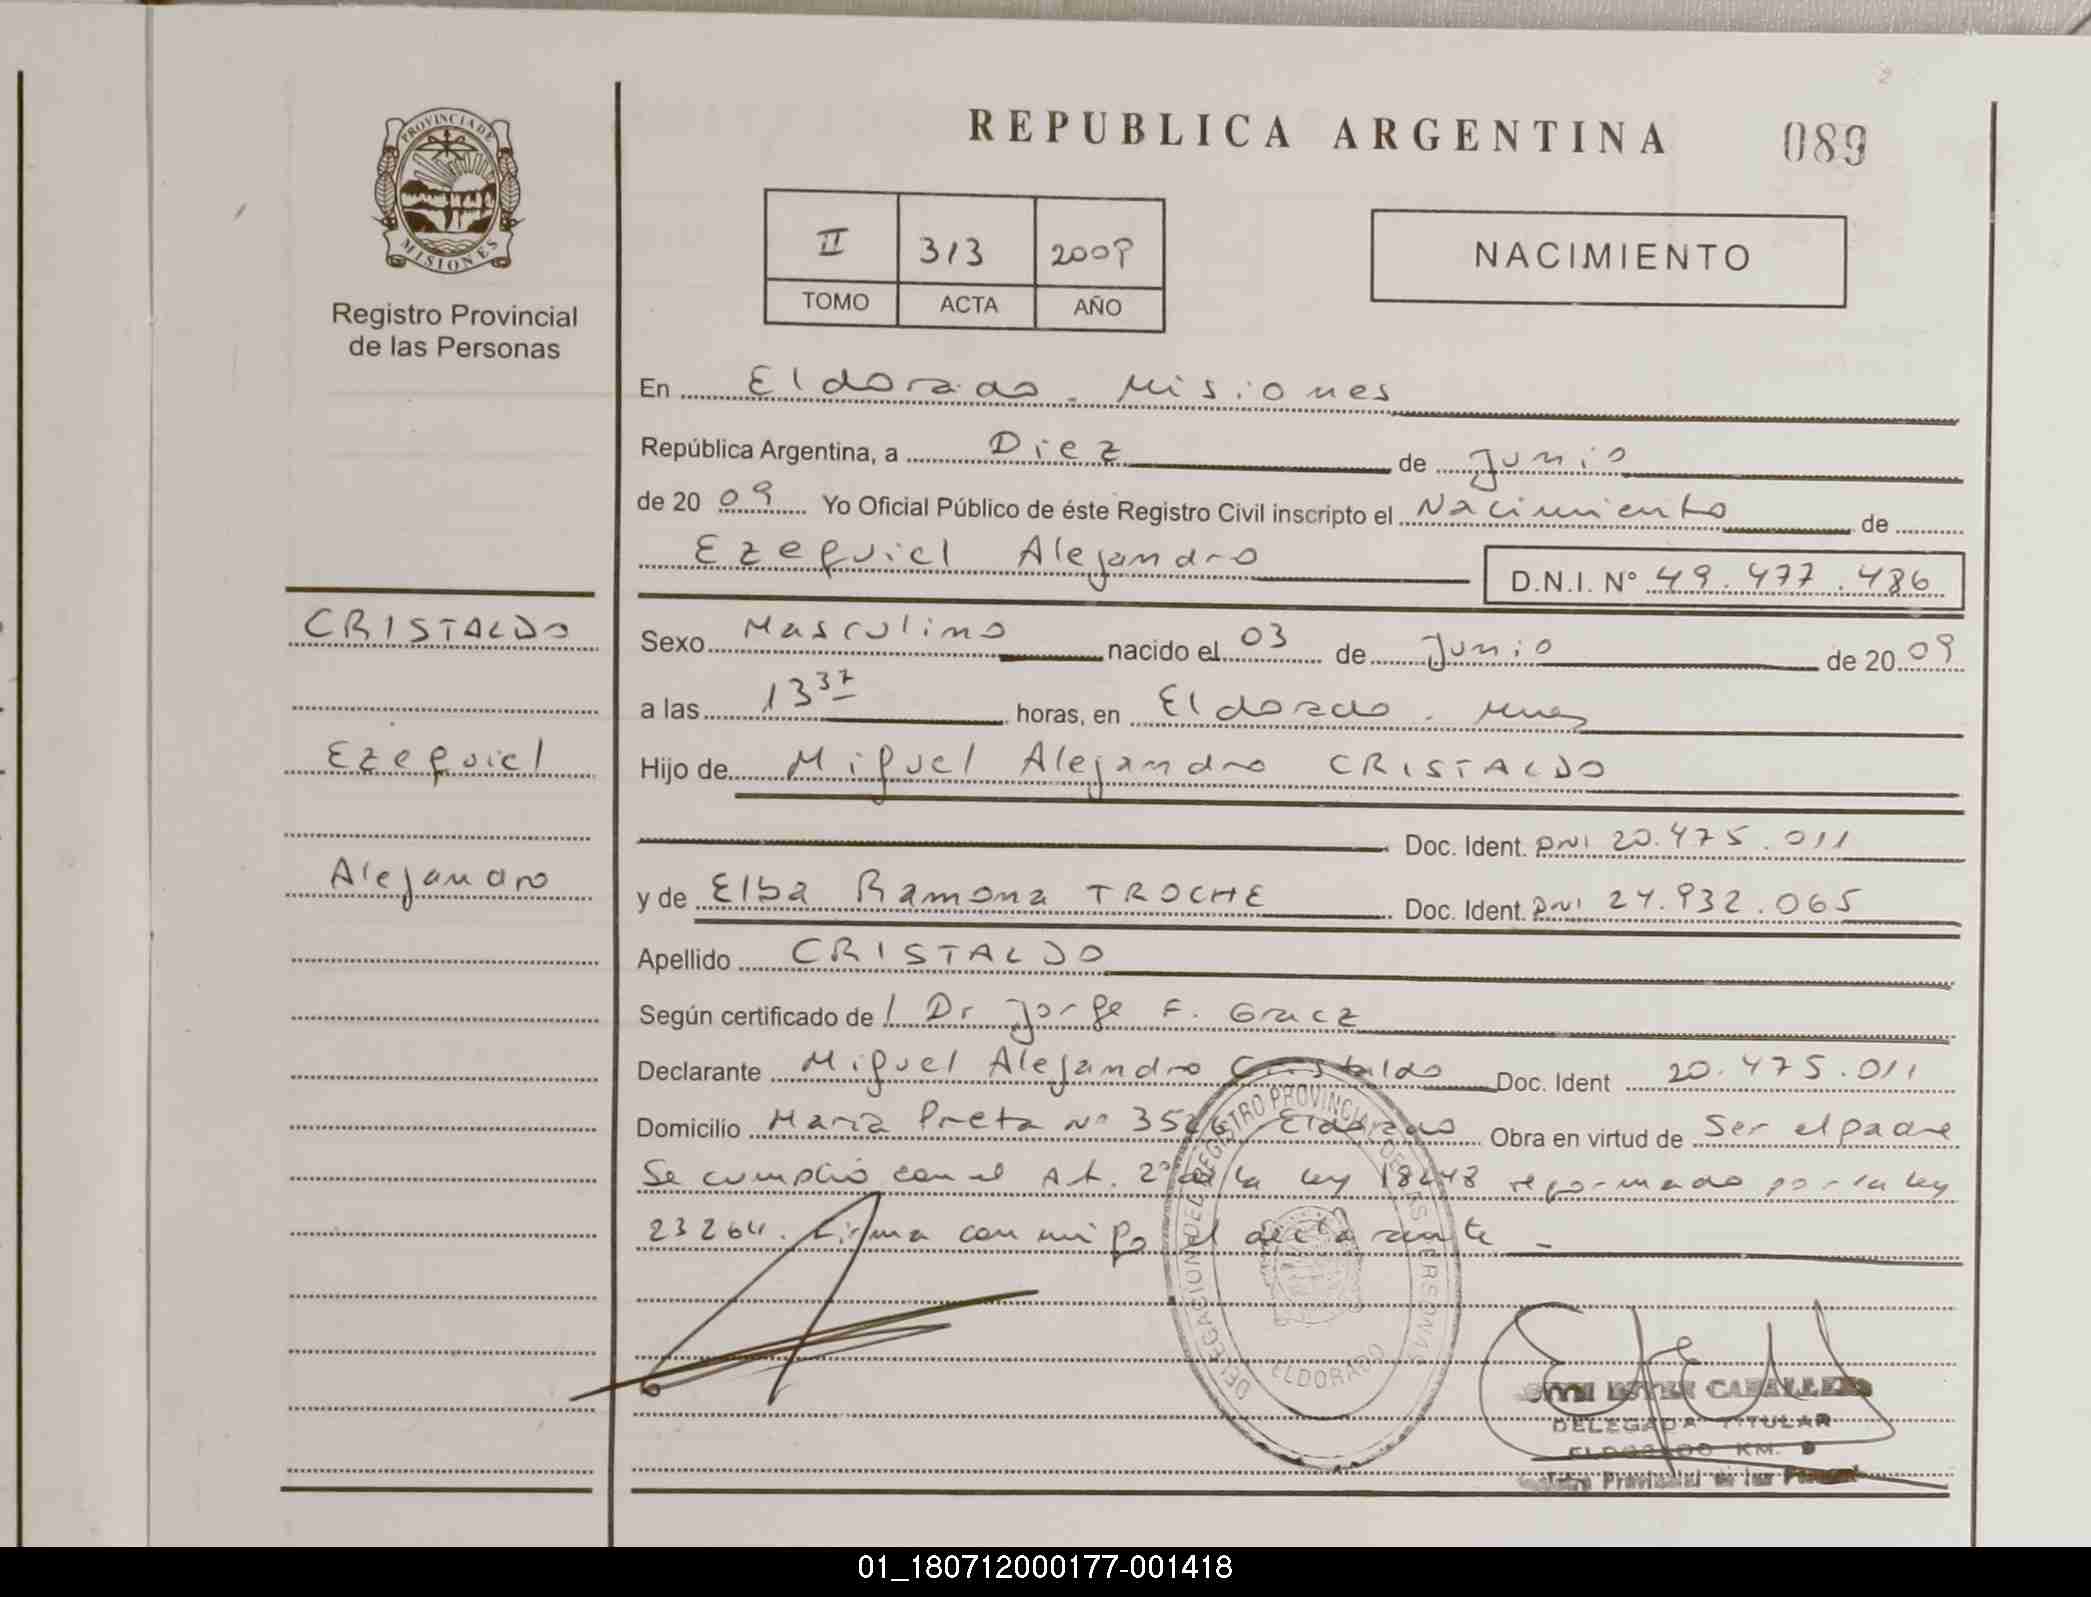 PROVINCIA DE
MISIONES
Registro Provincial
de las Personas
CRISTALDO
Ezequiel
Alejandro
REPUBLICA ARGENTINA 089
II 313 2009
TOMO ACTA AÑO
NACIMIENTO
En Eldorado - Misiones
República Argentina, a Diez de Junio
de 20 09 Yo Oficial Público de éste Registro Civil inscripto el Nacimiento de
Ezequiel Alejandro D.N.I. Nº 49.477.486
Sexo Masculino nacido el 03 de Junio de 20 09
a las 13 37 horas, en Eldorado - Mnes
Hijo de Miguel Alejandro CRISTALDO
Doc. Ident. DNI 20.475.011
y de Elba Ramona TROCHE Doc. Ident. DNI 24.932.065
Apellido CRISTALDO
Según certificado de l Dr Jorge F. Gracz
Declarante Miguel Alejandro Cristaldo Doc. Ident 20.475.011
Domicilio Maria Preta Nº Eldorado Obra en virtud de Ser el padre
Se cumplió con el Art. 2º de la ley 18248 reformado por la ley
23264. Firma conmigo el declarante -
DELEGACION DEL REGISTRO PROVINCIAL DE LAS PERSONAS
ELDORADO
ESTER CABALLERO
DELEGADA TITULAR
ELDORADO KM. 9
Registro Provincial de las Personas
01_180712000177-001418